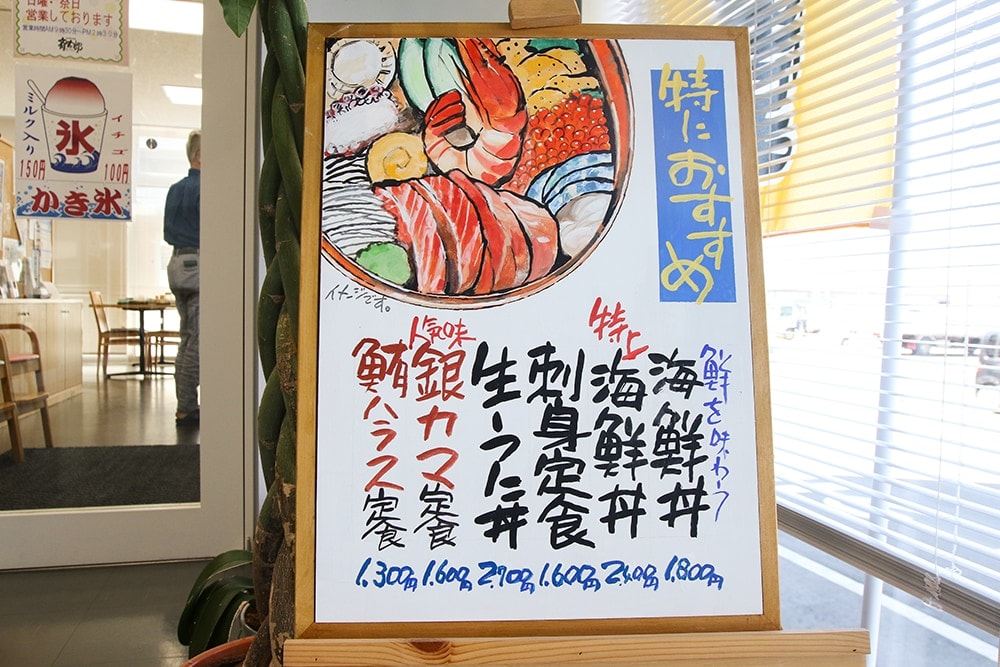 日曜・祭日
営業しております
営業時間AM9時30分〜PM2時30分
氷
ミルク入り
150円
イチゴ
100円
かき氷
特におすすめ
イメージです。
鮮を味わう
海鮮丼
1.800円
特上
海鮮丼
2.400円
刺身定食
1.600円
生うに丼
2.700円
人気味
銀カマ定食
1.600円
鮪ハラス定食
1.300円